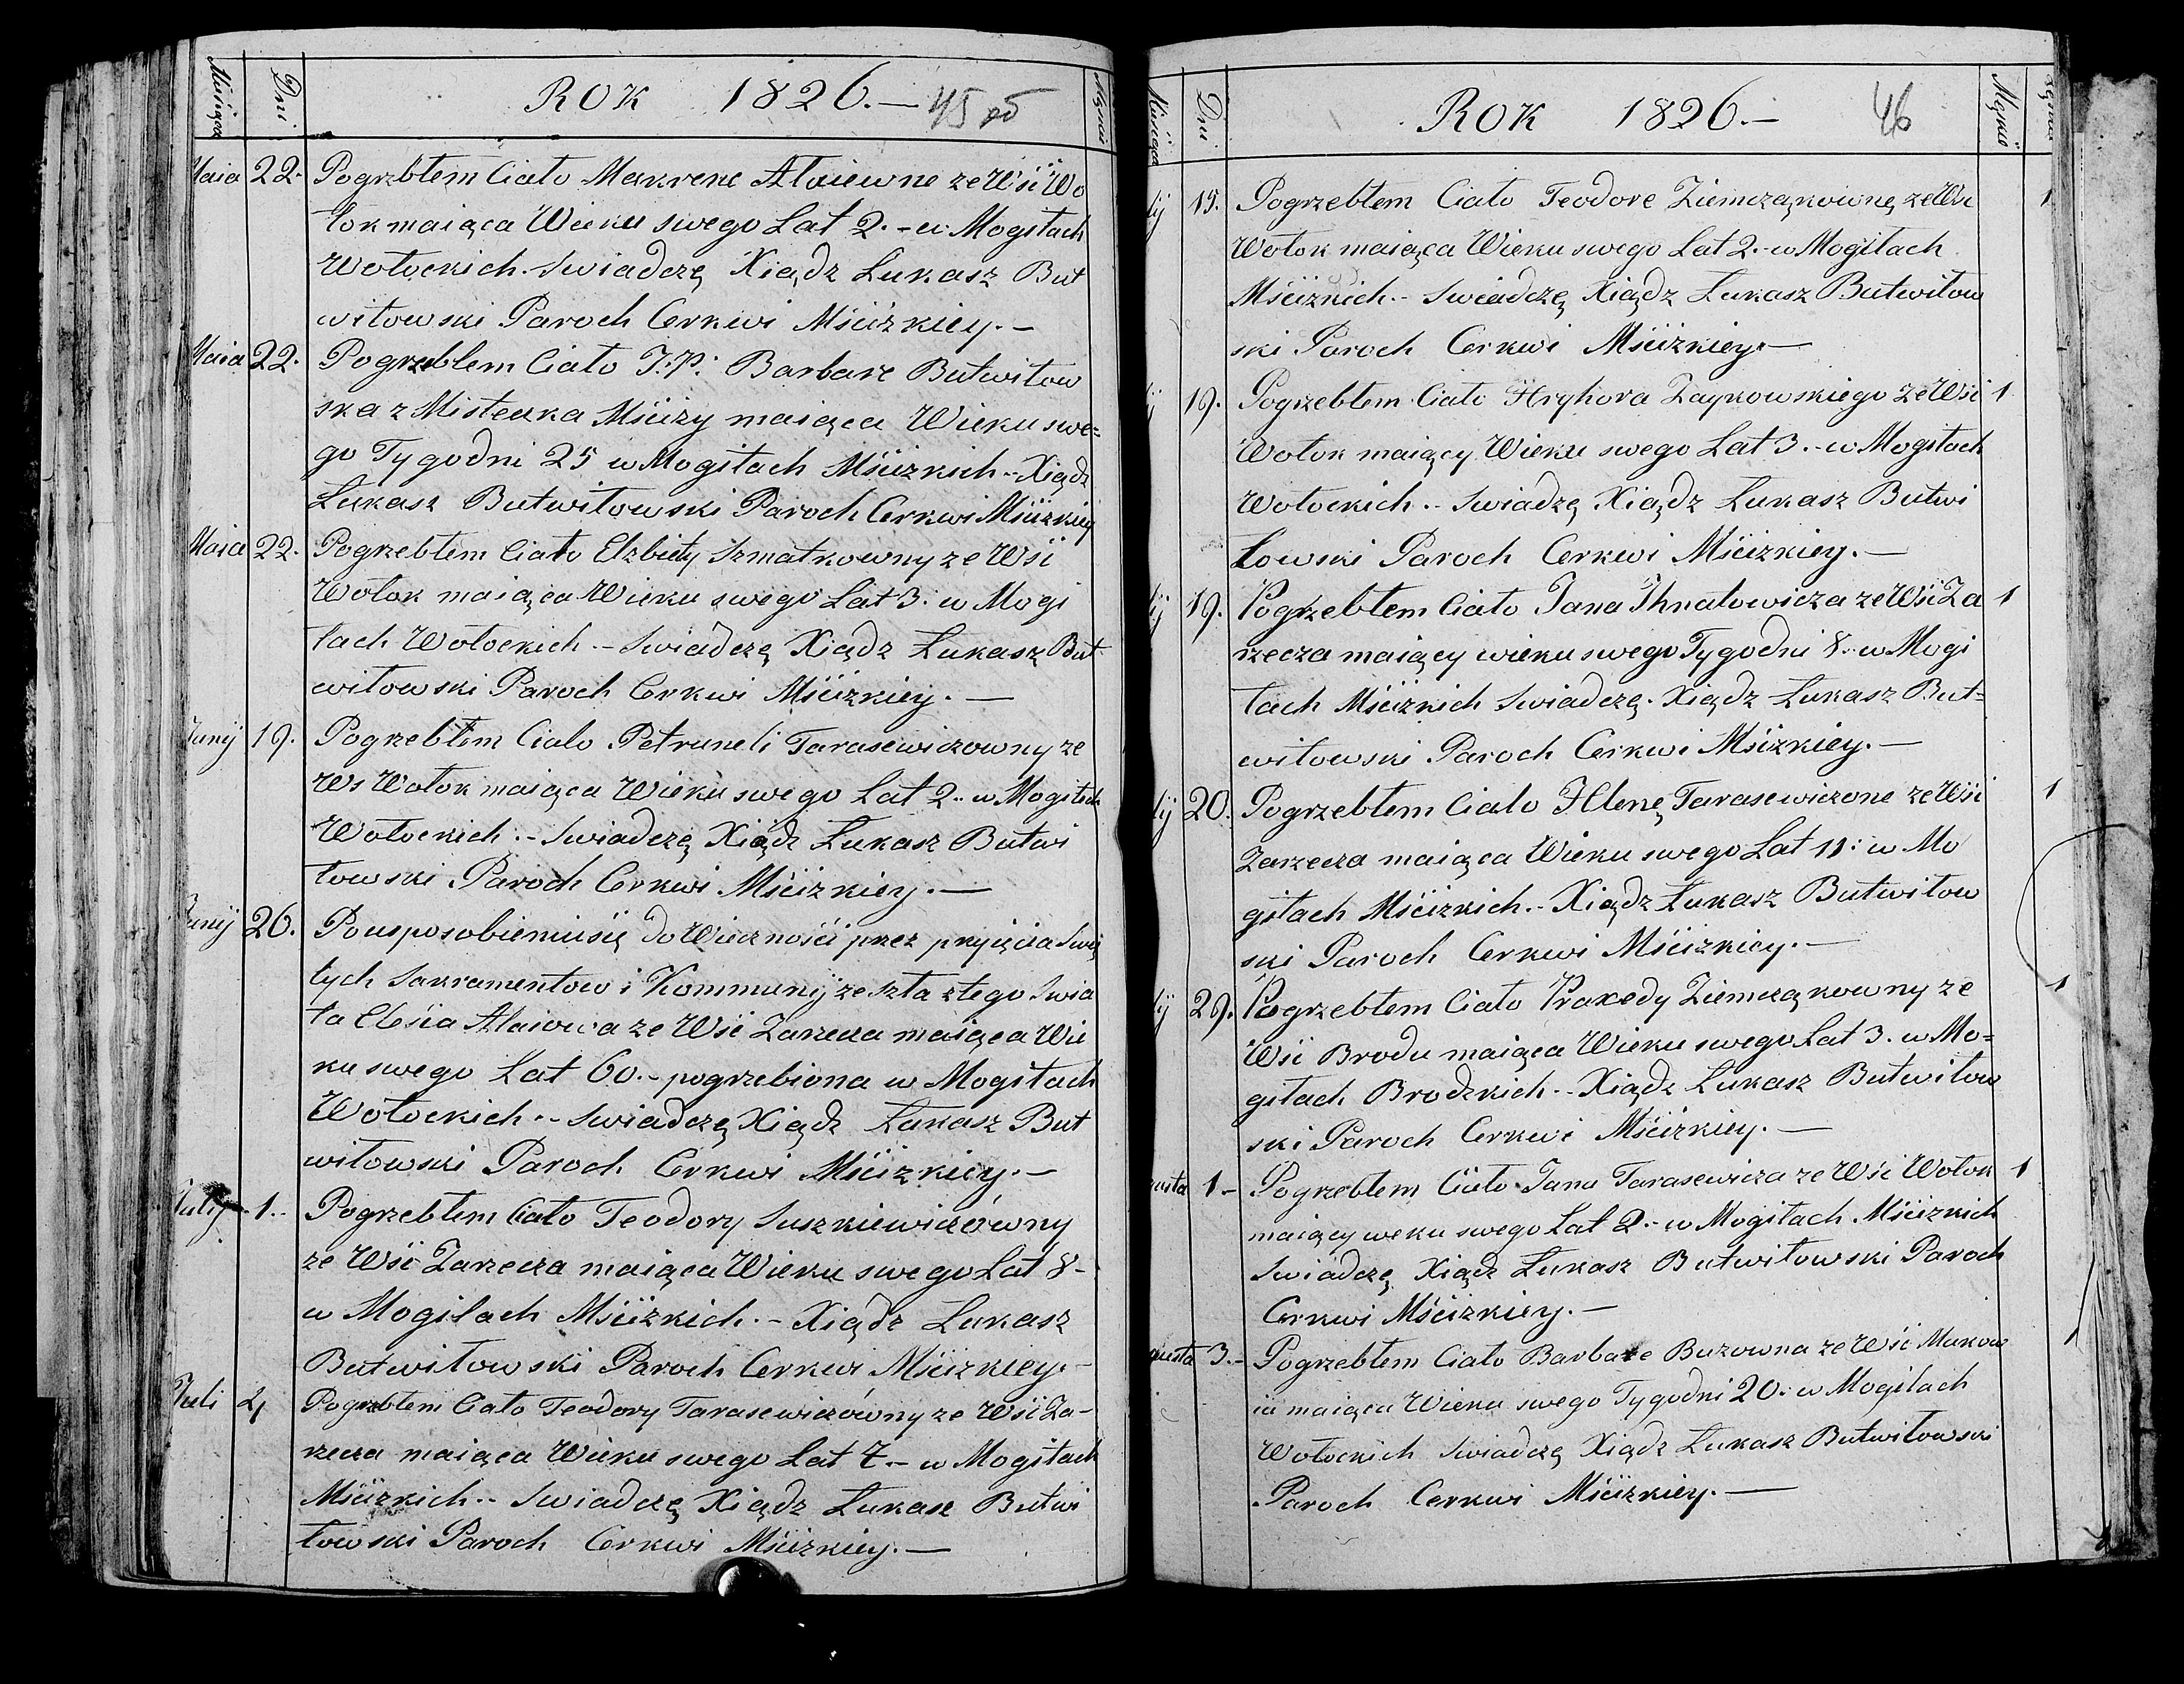 Miesiąca Dni ROK 1826.— 45 об Męzkiei
Maia 22. Pogrzbłem Ciało Makrene Ataiewne ze Wsi Wo
łok maiąca Wieku swego Lat 2. - w Mogiłach
Wołockich. Swiadczę Xiądz Łukasz But
wiłowski Paroch Cerkwi Mściżkiey.—
Maia 22. Pogrzebłem Ciało J.P. Barbare Butwiłow
ska z Misteczka Mściży maiąca Wieku swe=
go Tygodni 25 w Mogiłach Mściżkich.- Xiądz
Łukasz Butwiłowski Paroch Cerkwi Mściżkiey
Maia 22. Pogrzebłem Ciało Elzbiety Szmatkowny ze Wsi
Wołok maiąca Wieku swego Lat 3. w Mogi
łach Wołockich.- Swiadczę Xiądz Łukasz But
wiłowski Paroch Cerkwi Mściżkiey.—
Junij 19. Pogrzebłem Ciało Petruneli Tarasewiczowny ze
Ws Wołok maiąca Wieku swego Lat 2.. w Mogiłach
Wołockich.- Swiadczę Xiądz Łukasz Butwi
łowski Paroch Cerkwi Mściżkiey.—
Junij 26. Po usposobieniu się do Wieczności przez przyięcia Swię
tych Sakramentow i Kommunij zeszła z tego Swia
ta Ataiowa ze Wsi Zarzecza maiąca Wie
ku swego Lat 60.- pogrzebiona w Mogiłach
Wołockich.- Swiadczę Xiądz Łukasz But
wiłowski Paroch Cerkwi Mściżkiey.—
Julij 1.. Pogrzebłem Ciało Teodory Suszkiewiczówny
ze Wsi Zarzecza maiąca Wieku swego Lat 8-
w Mogiłach Mściżkich.- Xiądz Łukasz
Butwiłowski Paroch Cerkwi Mściżkiey.-
Juli 4 Pogrzebłem Ciało Teodory Tarasewiczówny ze Wsi Za-
rzecza maiąca Wieku swego Lat 7.- w Mogiłach
Mściżkich.- Swiadczę Xiądz Łukasz Butwi
łowski Paroch Cerkwi Mściżkiey.—
Miesiąca Dni ROK 1826.— 46 Męzkiei
lij 15. Pogrzebłem Ciało Teodore Ziemcząkownę ze Wsi 1
Wołok maiąca Wieku swego Lat 2.- w Mogiłach
Mściżkich.- Swiadczę Xiądz Łukasz Butwiłow
ski Paroch Cerkwi Mściżkiey.—
lij 19. Pogrzebłem Ciało Hryhora Zaykowskiego ze Wsi 1
Wołok maiący Wieku swego Lat 3.- w Mogiłach
Wołockich.- Swiadzę Xiądz Łukasz Butwi
łowski Paroch Cerkwi Mściżkiey.—
lij 19. Pogrzebłem Ciało Jana Ihnatowicza ze Wsi Za 1
rzecza maiący wieku swego Tygodni 8.- w Mogi
łach Mściżkich Swiadczę. Xiądz Łukasz But=
wiłowski Paroch Cerkwi Mściżkiey.—
lij 20. Pogrzebłem Ciało Hlenę Tarasewiczone ze Wsi 1
Zarzecza maiąca Wieku swego Lat 11: w Mo
giłach Mściżkich.- Xiądz Łukasz Butwiłow
ski Paroch Cerkwi Mściżkiey.—
lij 29. Pogrzebłem Ciało Praxedy Ziemcząkowny ze 1
Wsi Brodu maiąca Wieku swego Lat 3. w Mo=
giłach Brodzkich.- Xiądz Łukasz Butwiłow
ski Paroch Cerkwi Mściżkiey.—
gusta 1.- Pogrzebłem Ciało Jana Tarasewicza ze Wsi Wołok 1
maiący weku swego Lat 2.- w Mogiłach Mściżkich
Swiadczę Xiądz Łukasz Butwiłowski Paroch
Cerkwi Mściżkiey.—
gusta 3.- Pogrzebłem Ciało Barbare Buzowna ze Wsi Makow
iü maiąca Wieku swego Tygodni 20. w Mogiłach
Wołockich Swiadczę Xiądz Łukasz Butwiłowski
Paroch Cerkwi Mściżkiey.—